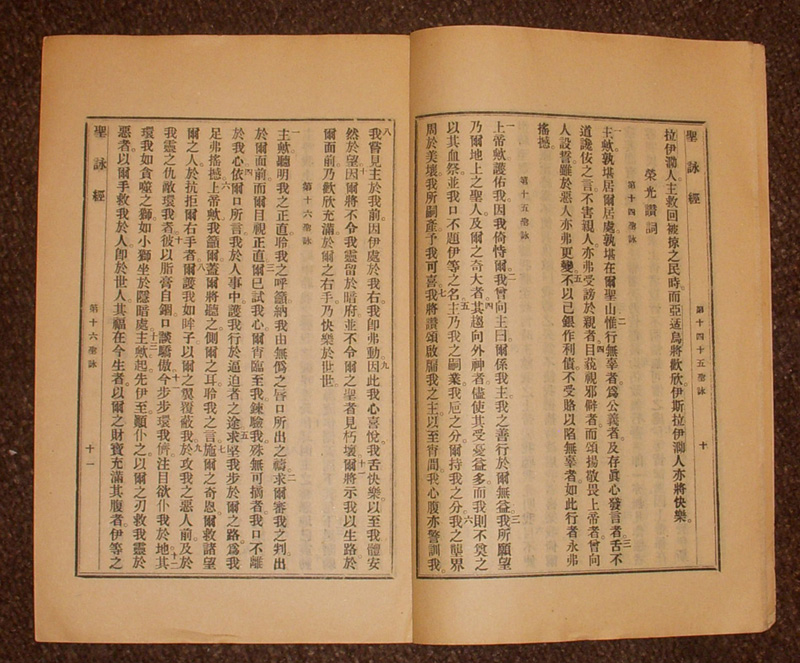 聖詠經 第十四十五聖詠 十
拉伊瀰人主救回被掠之民時而亞适烏將歡欣伊斯拉伊瀰人亦將快樂。
榮光讚詞
第十四聖詠
一主歟孰堪居爾居處孰堪在爾聖山二惟行無辜者爲公義者及存眞心發言者三舌不
道讒佞之言不害親人亦弗受謗於親者四目莪視邪僻者而頌揚敬畏上帝者曾向
人設誓雖於惡人亦弗更變五不以己銀作利債不受賂以陷無辜者如此行者永弗
搖撼
第十五聖詠
一上帝歟護佑我因我倚恃爾二我曾向主曰爾係我主我之善行於爾無益三我所願望
乃爾地上之聖人及爾之奇大者四其趨向外神者儘使其受憂益多而我則不奠之
以其血祭並我口不題伊等之名五主乃我之嗣業我卮之分爾持我之分六我之壟界
周於美壤我所嗣產予我可喜七我將讚頌啟牖我之主以至宵間我心腹亦警訓我
八我嘗見主於我前因伊處於我右我卽弗動九因此我心喜悅我舌快樂以至我體安
然於望十因爾將不令我靈留於暗府並不令爾之聖者見朽壞十一爾將示我以生路於
爾面前乃歡欣充滿於爾之右手乃快樂於世世
第十六聖詠
一主歟聽明我之正直聆我之呼籲納我由無僞之唇口所出之禱二求爾審我之判出
於爾面前而爾目視正直三爾已試我心爾宵臨至我鍊驗我殊無可摘者我口不離
於我心四依爾口所言我於人事中護我行於逼迫者之途五求堅我步於爾之路爲我
足弗搖撼六上帝歟我籲爾蓋爾將聽之側爾之耳聆我之言七施爾之奇恩爾救諸望
爾之人於抗拒爾右手者八爾護我如眸子以爾之翼覆蔽我九於攻我之惡人前及於
我靈之仇敵環我者十彼以脂膏自錮口談驕傲十一今步步環我儕注目欲仆我於地十二其
環我如貪噬之獅如小獅坐於隱暗處十三主歟起先伊至顚仆之以爾之刃救我靈於
惡者十四以爾手救我於人卽於世人其福在今生者以爾之財寶充滿其腹者伊等之
聖詠經 第十六聖詠 十一